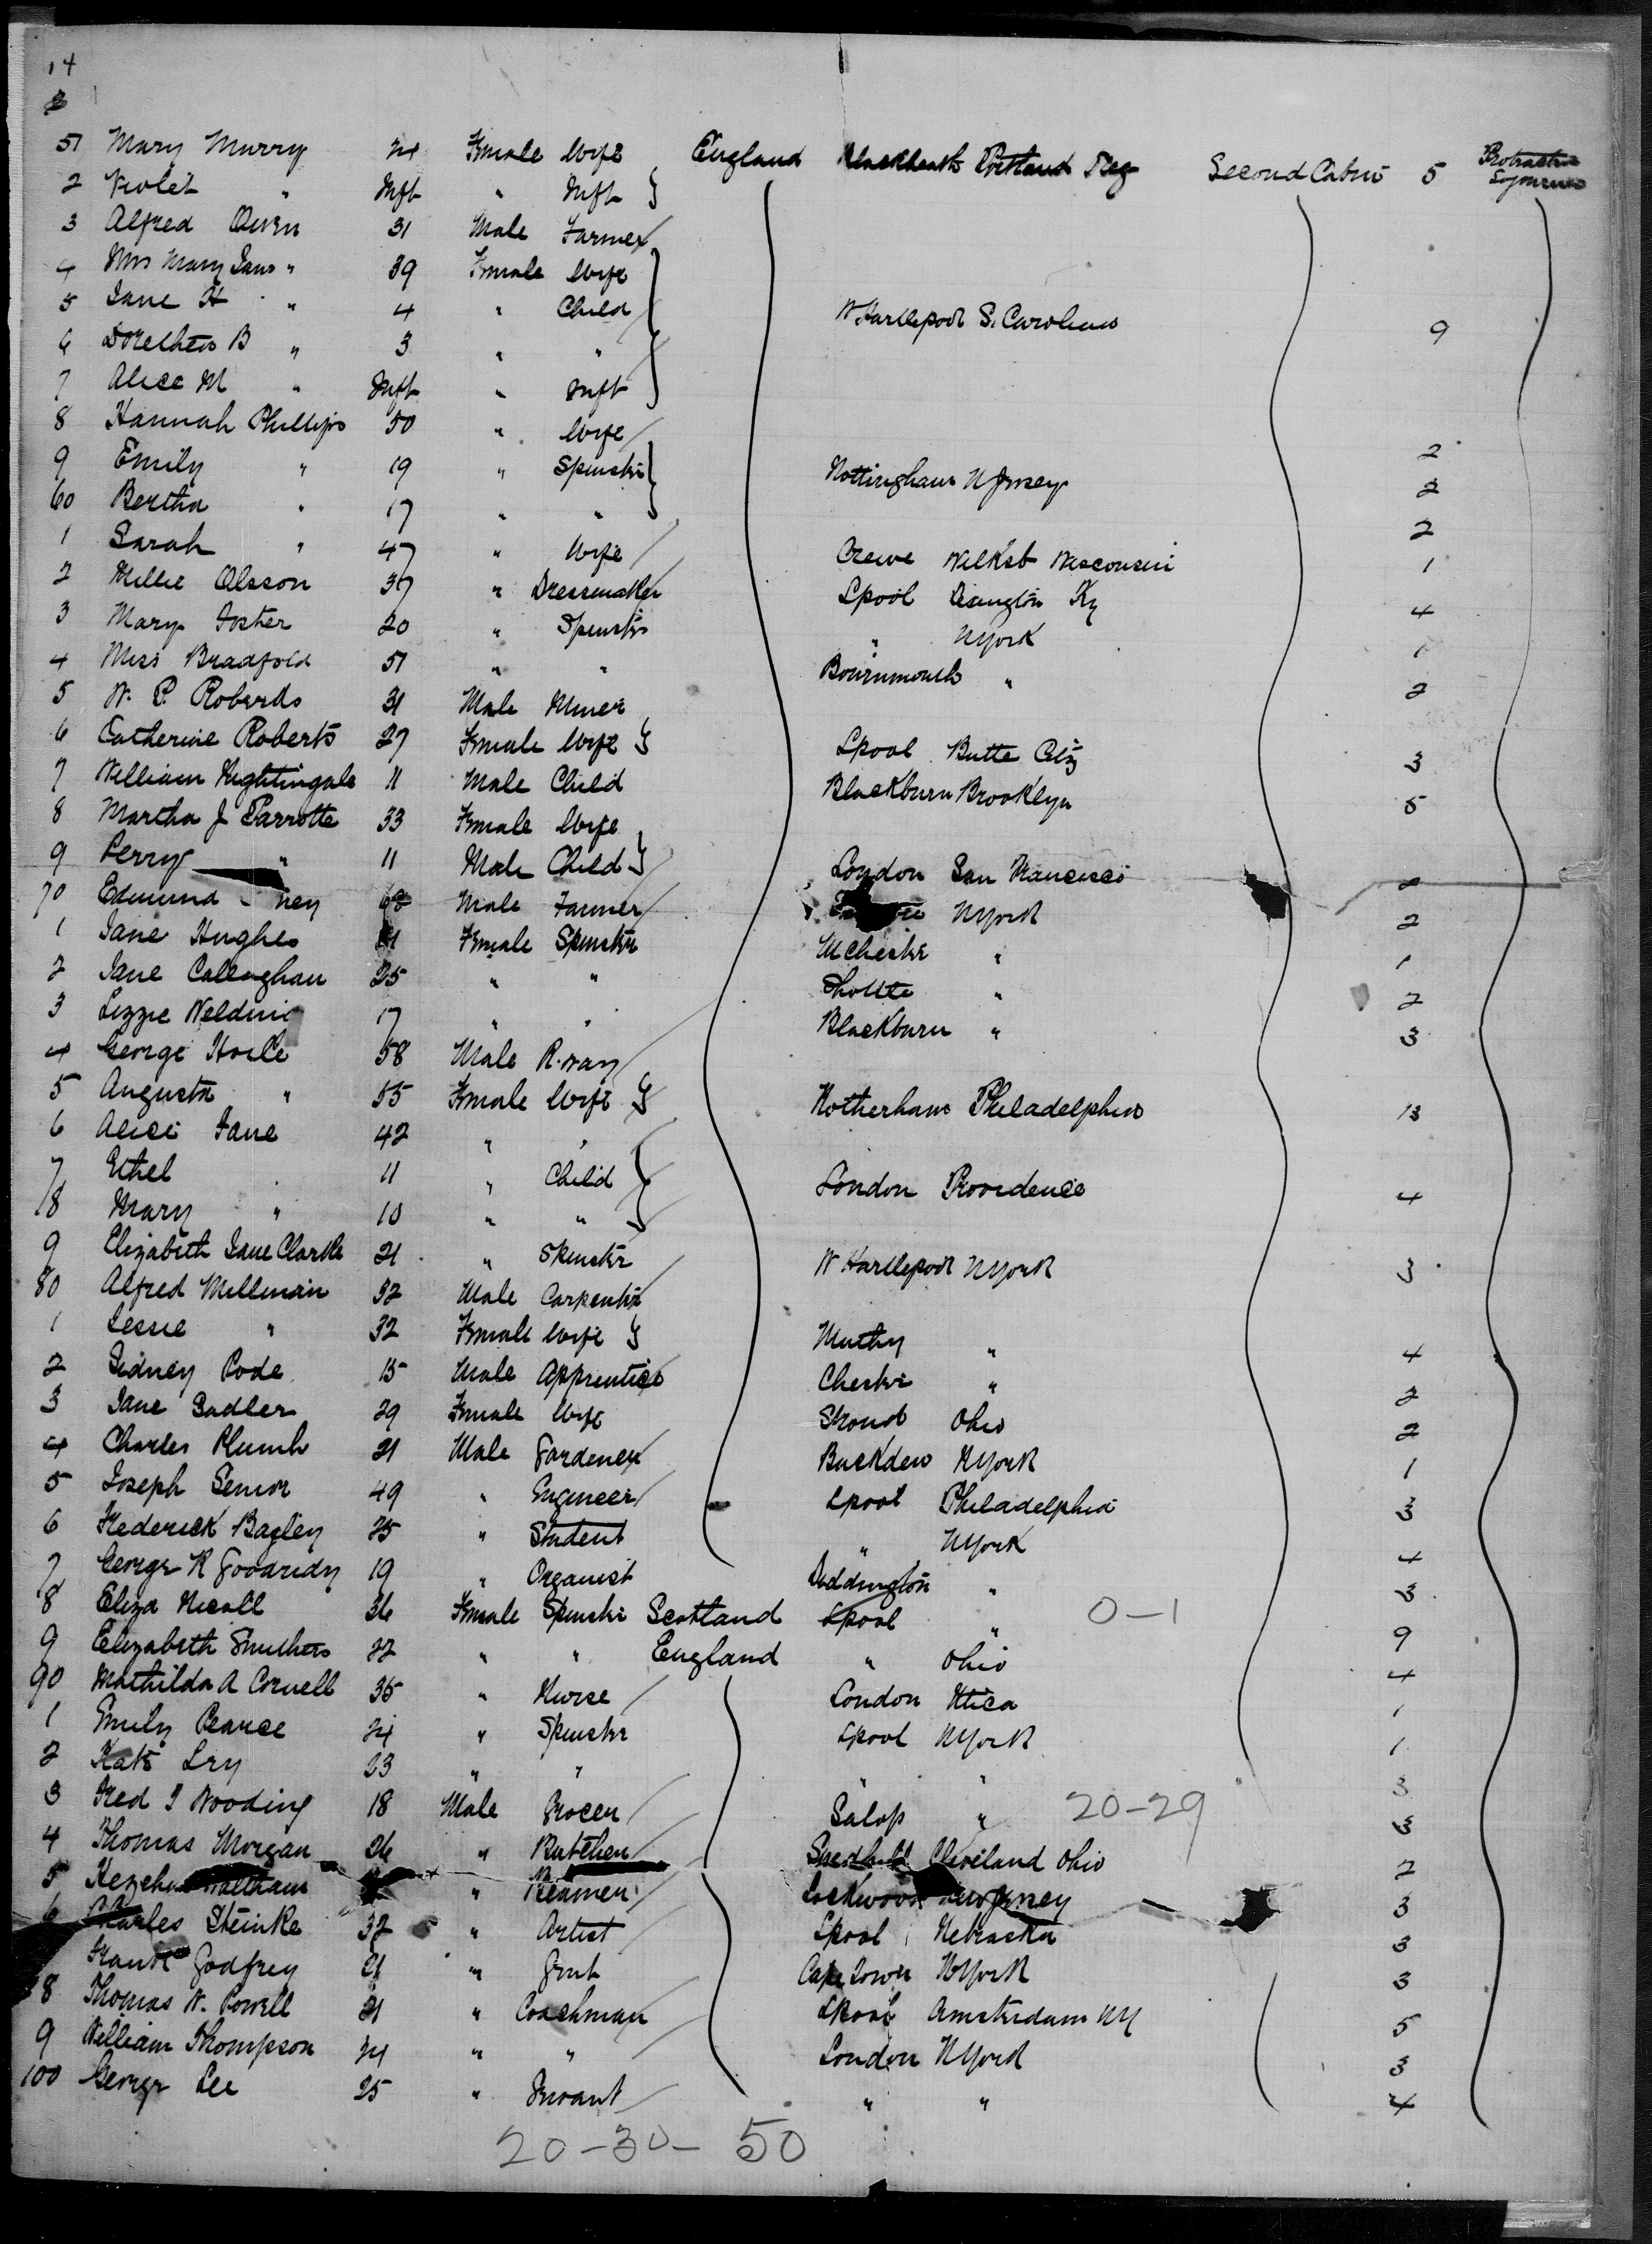 14
51 Mary Murry 24 Female Wife England Blackheath Portland Reg Second Cabin 5 Protracted Sojourn
2 Violet " Inft " Inft
3 Alfred Owen 31 Male Farmer
4 Mrs Mary Jane " 39 Female Wife
5 Jane H " 4 " Child W Hartlepool S. Carolina 9
6 Dorethea B " 3 " "
7 Alice M " Inft " Inft
8 Hannah Phillips 50 " Wife 2
9 Emily " 19 " Spinster Nottingham N Jersey 2
60 Bertha " 17 " " 2
1 Sarah " 47 " Wife Crewe Wisconsin 1
2 Millie Olsson 37 " Dressmaker Lpool Lexington Ky 4
3 Mary Foster 20 " Spinster " NYork 1
4 Miss Bradfold 51 " " Bournmouth " 2
5 W. P. Roberds 31 Male Miner
6 Catherine Roberts 27 Female Wife Lpool Butte City 3
7 William Nightingale 11 Male Child Blackburn Brooklyn 5
8 Martha J Parrotte 33 Female Wife
9 Perry " 11 Male Child London San Francisco
70 Edmund 68 Male Farmer NYork 2
1 Jane Hughes Female Spinster MChester " 1
2 Jane Callaghan 25 " " " 2
3 Lizzie 17 " " Blackburn " 3
4 George Hoile 58 Male R.way
5 Augusta " 55 Female Wife Rotherham Philadelphia 13
6 Alice Jane 42 " "
7 Ethel " 11 " Child London Providence 4
8 Mary " 10 " "
9 Elizabeth Jane Clarke 21 " Spinster W Hartlepool NYork 3
80 Alfred Millman 32 Male Carpenter
1 Jessie " 32 Female Wife " 4
2 Sidney Pode 15 Male Apprentice Chester " 2
3 Jane Sadler 29 Female Wife Ohio 2
4 Charles Plumb 21 Male Gardener Buckden NYork 1
5 Joseph Senior 49 " Engineer Lpool Philadelphia 3
6 Frederick Bagley 25 " Student " NYork 4
7 George R Goodridy 19 " Organist Paddington " 3
8 Eliza Nicoll 36 Female Spinster Scotland Lpool " 0-1 9
9 Elizabeth Smithers 22 " " England " Ohio 4
90 Mathilda A Cornell 35 " Nurse London Utica 1
1 Emily Pearce 24 " Spinster Lpool NYork 1
2 Kate Lry 23 " " " " 3
3 Fred J Wooding 18 Male Grocer Salop " 20-29 3
4 Thomas Morgan 26 " Butcher Cleveland Ohio 2
5 Waltham " Lockwood New Jersey 3
6 Charles Steinke 32 " Artist Lpool Nebraska 3
Frank Godfrey 21 " Gent Cape Town NYork 3
8 Thomas W. Powell 21 " Coachman Lpool Amsterdam NY 5
9 William Thompson 24 " " London NYork 3
100 George Lee 25 " Servant " " 4
20-30- 50